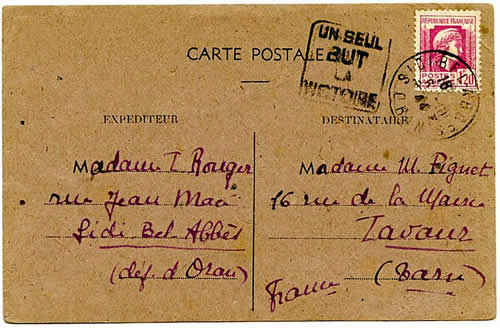 CARTE POSTALE
UN SEUL
BUT
LA
VICTOIRE
RÉPUBLIQUE FRANÇAISE
POSTES
1F20
SIDI BEL ABBÈS
ORAN
EXPEDITEUR
Madame T. Rouger
rue Jean Macé
Sidi Bel Abbès
(dép. d'Oran)
DESTINATAIRE
Madame M. Pignet
16 rue de la
Lavaur
(Tarn)
France